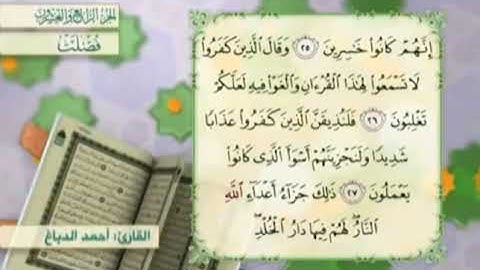 الجزء الرابع والعشرون
فُصِّلَتْ
إِنَّهُمْ كَانُوا۟ خَٰسِرِينَ ٢٥ وَقَالَ الَّذِينَ كَفَرُوا۟
لَا تَسْمَعُوا۟ لِهَٰذَا الْقُرْءَانِ وَالْغَوْا۟ فِيهِ لَعَلَّكُمْ
تَغْلِبُونَ ٢٦ فَلَنُذِيقَنَّ الَّذِينَ كَفَرُوا۟ عَذَابًا
شَدِيدًا وَلَنَجْزِيَنَّهُمْ أَسْوَأَ الَّذِى كَانُوا۟
يَعْمَلُونَ ٢٧ ذَٰلِكَ جَزَآءُ أَعْدَآءِ اللَّهِ
النَّارُ ۖ لَهُمْ فِيهَا دَارُ الْخُلْدِ ۖ
القارئ: أحمد الدباغ